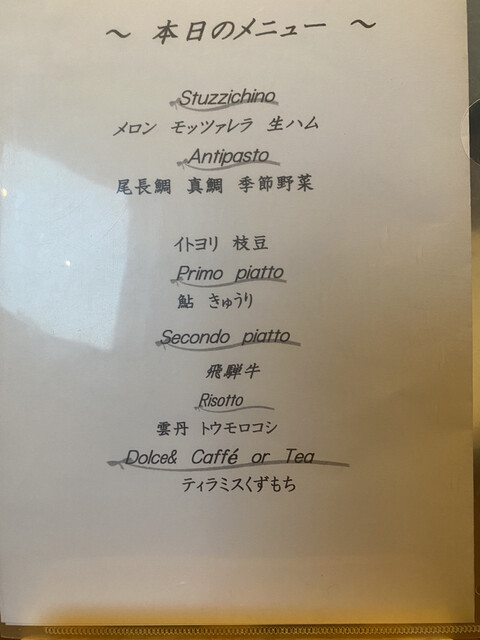 ～ 本日のメニュー ～
Stuzzichino
メロン モッツァレラ 生ハム
Antipasto
尾長鯛 真鯛 季節野菜
イトヨリ 枝豆
Primo piatto
鮎 きゅうり
Secondo piatto
飛騨牛
Risotto
雲丹 トウモロコシ
Dolce& Caffé or Tea
ティラミスくずもち